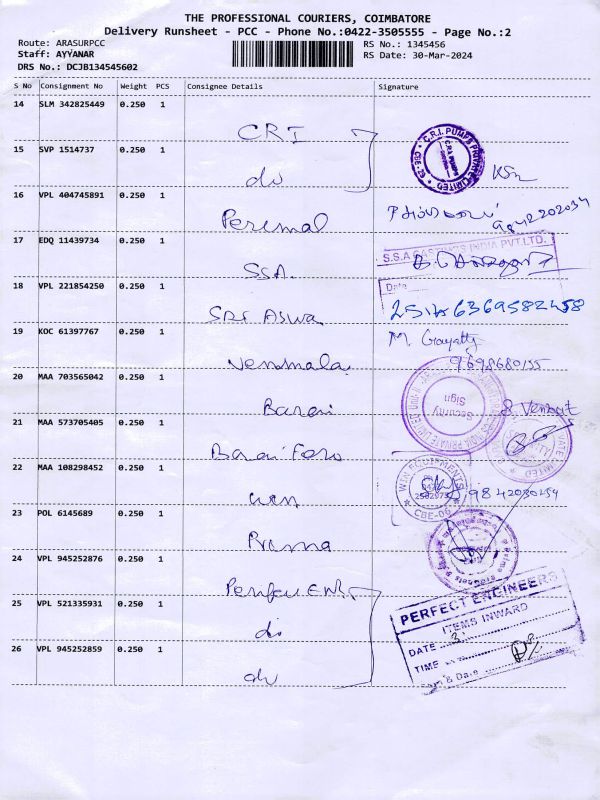 THE PROFESSIONAL COURIERS, COIMBATORE
Delivery Runsheet - PCC - Phone No.:0422-3505555 - Page No.:2
Route: ARASURPCC
RS No.: 1345456
Staff: AYYANAR
RS Date: 30-Mar-2024
DRS No.: DCJB134545602
S No Consignment No Weight PCS Consignee Details Signature
14 SLM 342825449 0.250 1 CRI
C.R.I. PUMPS PRIVATE LIMITED
15 SVP 1514737 0.250 1 do
16 VPL 404745891 0.250 1 Perumal
17 EDQ 11439734 0.250 1 SSA
S.S.A CASTINGS INDIA PVT.LTD.
Date
18 VPL 221854250 0.250 1 SRI ASWA
6369582458
19 KOC 61397767 0.250 1
M. Gayatty
9698680155
20 MAA 703565042 0.250 1 Barani
Security
Sign
S. Venkat
21 MAA 573705405 0.250 1 Barani Fero
22 MAA 108298452 0.250 1
WIN EQUIPMENTS
9842030254
23 POL 6145689 0.250 1 Prema
24 VPL 945252876 0.250 1
25 VPL 521335931 0.250 1 do
PERFECT ENGINEERS
ITEMS INWARD
DATE
TIME
Sign & Date
26 VPL 945252859 0.250 1 do